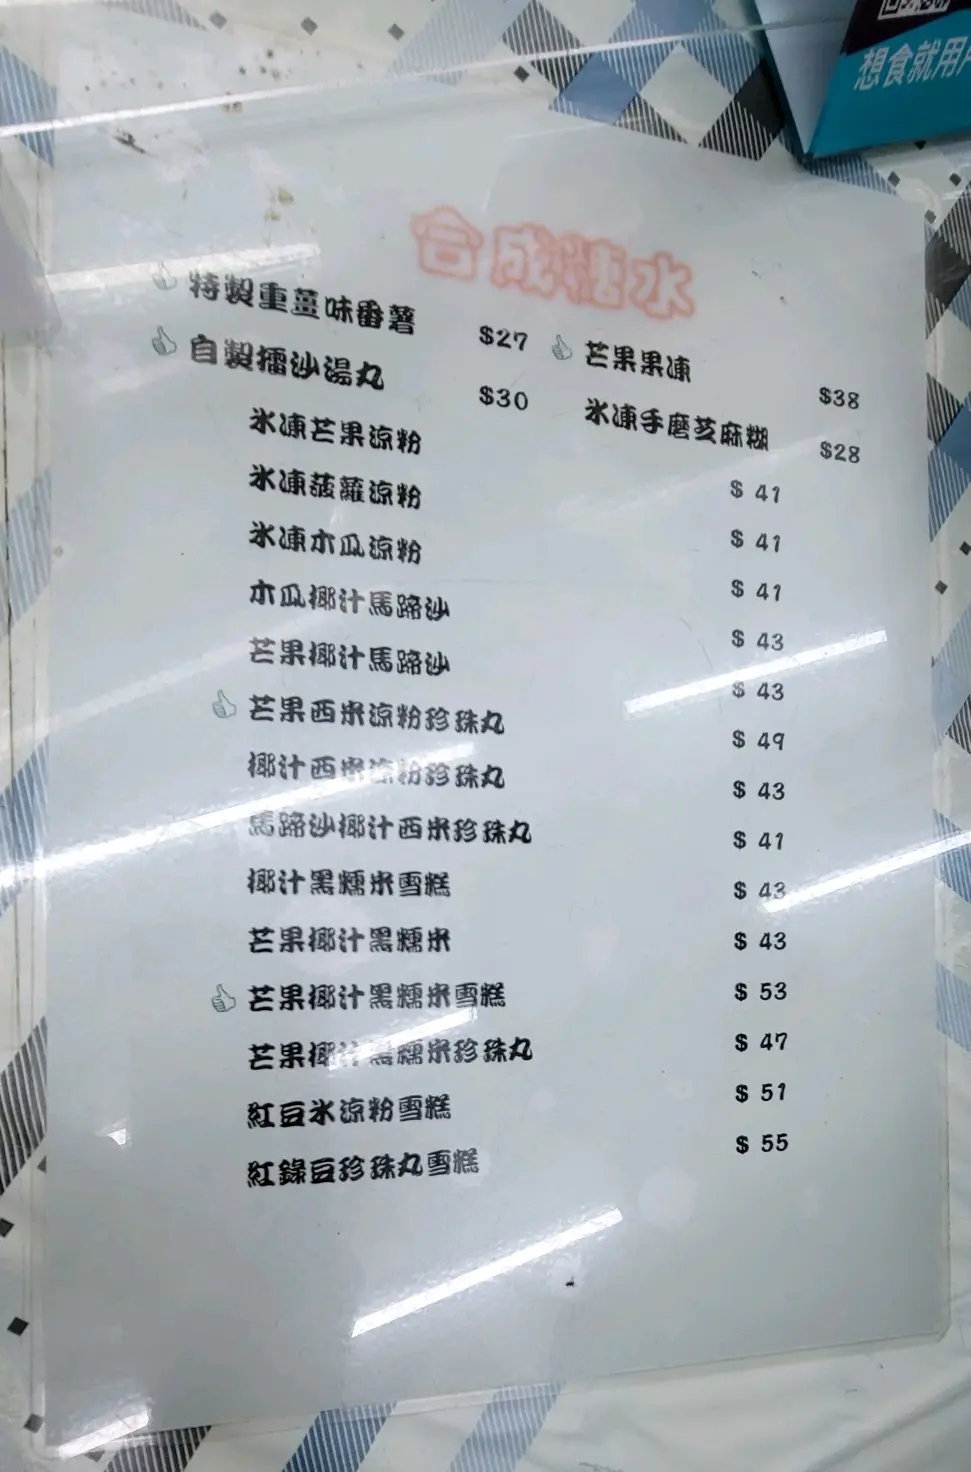 想食就用
合成糖水
特製重薑味番薯 $27
芒果果凍 $38
自製擂沙湯丸 $30
氷凍手磨芝麻糊 $28
氷凍芒果涼粉 $ 41
氷凍菠蘿涼粉 $ 41
氷凍木瓜涼粉 $ 41
木瓜椰汁馬蹄沙 $ 43
芒果椰汁馬蹄沙 $ 43
芒果西米涼粉珍珠丸 $ 49
椰汁西米涼粉珍珠丸 $ 43
馬蹄沙椰汁西米珍珠丸 $ 41
椰汁黑糯米雪糕 $ 43
芒果椰汁黑糯米 $ 43
芒果椰汁黑糯米雪糕 $ 53
芒果椰汁黑糯米珍珠丸 $ 47
紅豆氷涼粉雪糕 $ 51
紅綠豆珍珠丸雪糕 $ 55